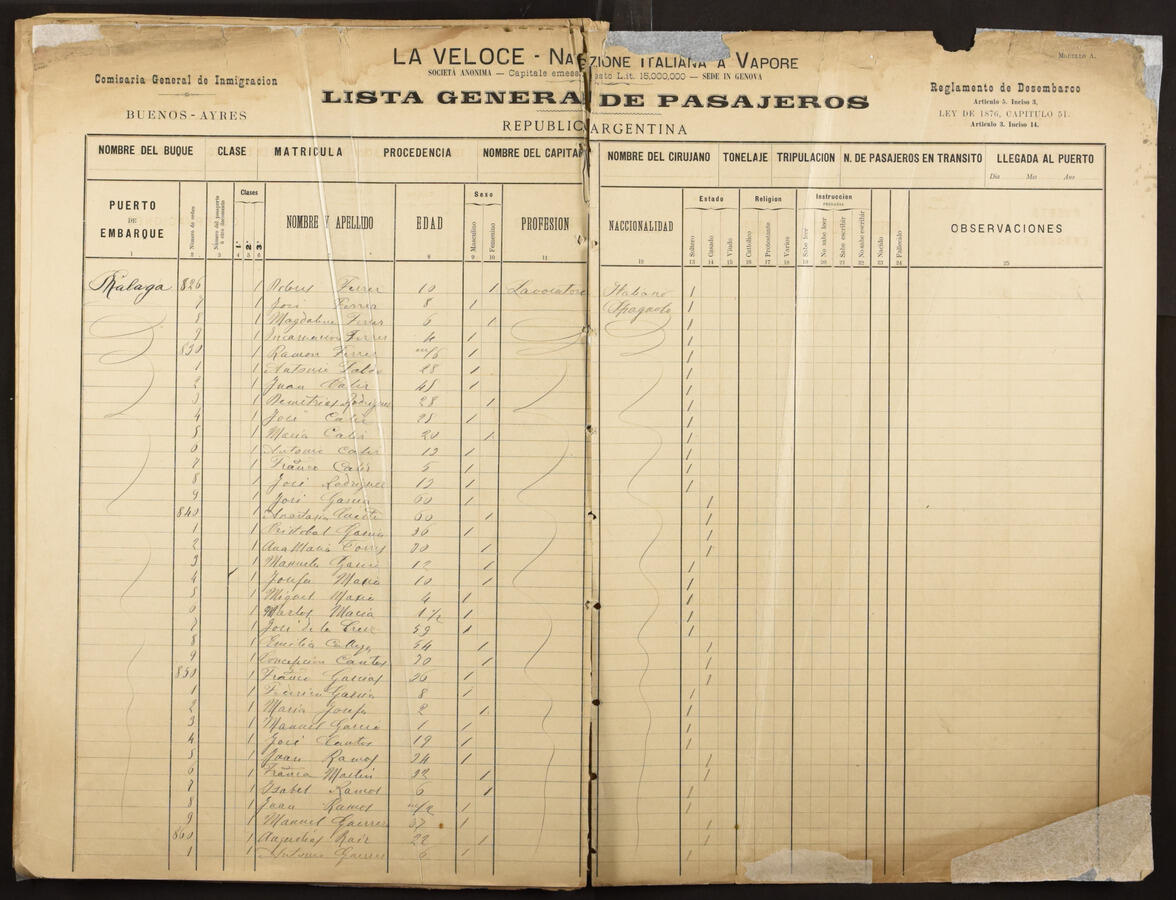 LA VELOCE - Na ZIONE ITALIANA A VAPORE
SOCIETÀ ANONIMA — Capitale emess esto L.it. 15,000,000 — SEDE IN GENOVA
MODELLO A.
Comisaria General de Inmigracion
BUENOS-AYRES
LISTA GENERA DE PASAJEROS
REPUBLIC ARGENTINA
Reglamento de Desembarco
Articulo 5. Inciso 3,
LEY DE 1876, CAPITULO 51.
Articulo 3. Inciso 14.
NOMBRE DEL BUQUE CLASE MATRICULA PROCEDENCIA NOMBRE DEL CAPITA NOMBRE DEL CIRUJANO TONELAJE TRIPULACION N. DE PASAJEROS EN TRANSITO LLEGADA AL PUERTO
Dia Mes Ano
PUERTO DE EMBARQUE Número de orden Clases 1.ª 2.ª 3.ª NOMBRE Y APELLIDO EDAD Sexo Masculino Femenino PROFESION NACCIONALIDAD Estado Soltero Casado Viudo Religion Cattolico Protestante Varios Instruccion Sabe leer No sabe leer Sabe escribir No sabe escribir Nacido Fallecido OBSERVACIONES
1 2 3 4 5 6 7 8 9 10 11 12 13 14 15 16 17 18 19 20 21 22 23 24 25
Malaga 826 1 Ferrer 10 1 Lavoratore Italiano 1
7 1 José Ferrer 8 1 Spagnolo 1
8 1 Magdalena Ferrer 6 1 1
9 1 Incarnacion Ferrer 4 1 1
830 1 Ramon Ferrer m/6 1 1
1 1 Antonio 28 1 1
2 1 Juan 45 1 1
3 1 Rodriguez 28 1 1
4 1 José 25 1 1
5 1 Maria 20 1 1
6 1 Antonio 12 1 1
7 1 Franco 5 1 1
8 1 José Rodriguez 12 1 1
9 1 José Garcia 60 1 1
840 1 Anastasia 60 1 1
1 1 Cristobal Garcia 36 1 1
2 1 Ana Maria Torres 30 1 1
3 1 Manuela Garcia 12 1 1
4 1 Josefa Maria 10 1 1
5 1 Miguel Maria 4 1 1
6 1 Carlos Maria 1 1/2 1 1
7 1 José de la Cruz 59 1 1
8 1 Emilia 54 1 1
9 1 Concepcion Cantos 30 1 1
850 1 Franco Garcias 26 1 1
1 1 Garcia 8 1 1
2 1 Maria Josefa 2 1 1
3 1 Manuel Garcia 1 1 1
4 1 José Cantos 19 1 1
5 1 Juan Ramos 24 1 1
6 1 Franca Martin 22 1 1
7 1 Isabel Ramos 6 1 1
8 1 Juan Ramos m/2 1 1
9 1 Manuel Guerrero 37 1 1
860 1 Angustias Ruiz 22 1 1
1 1 Antonio Guerrero 6 1 1